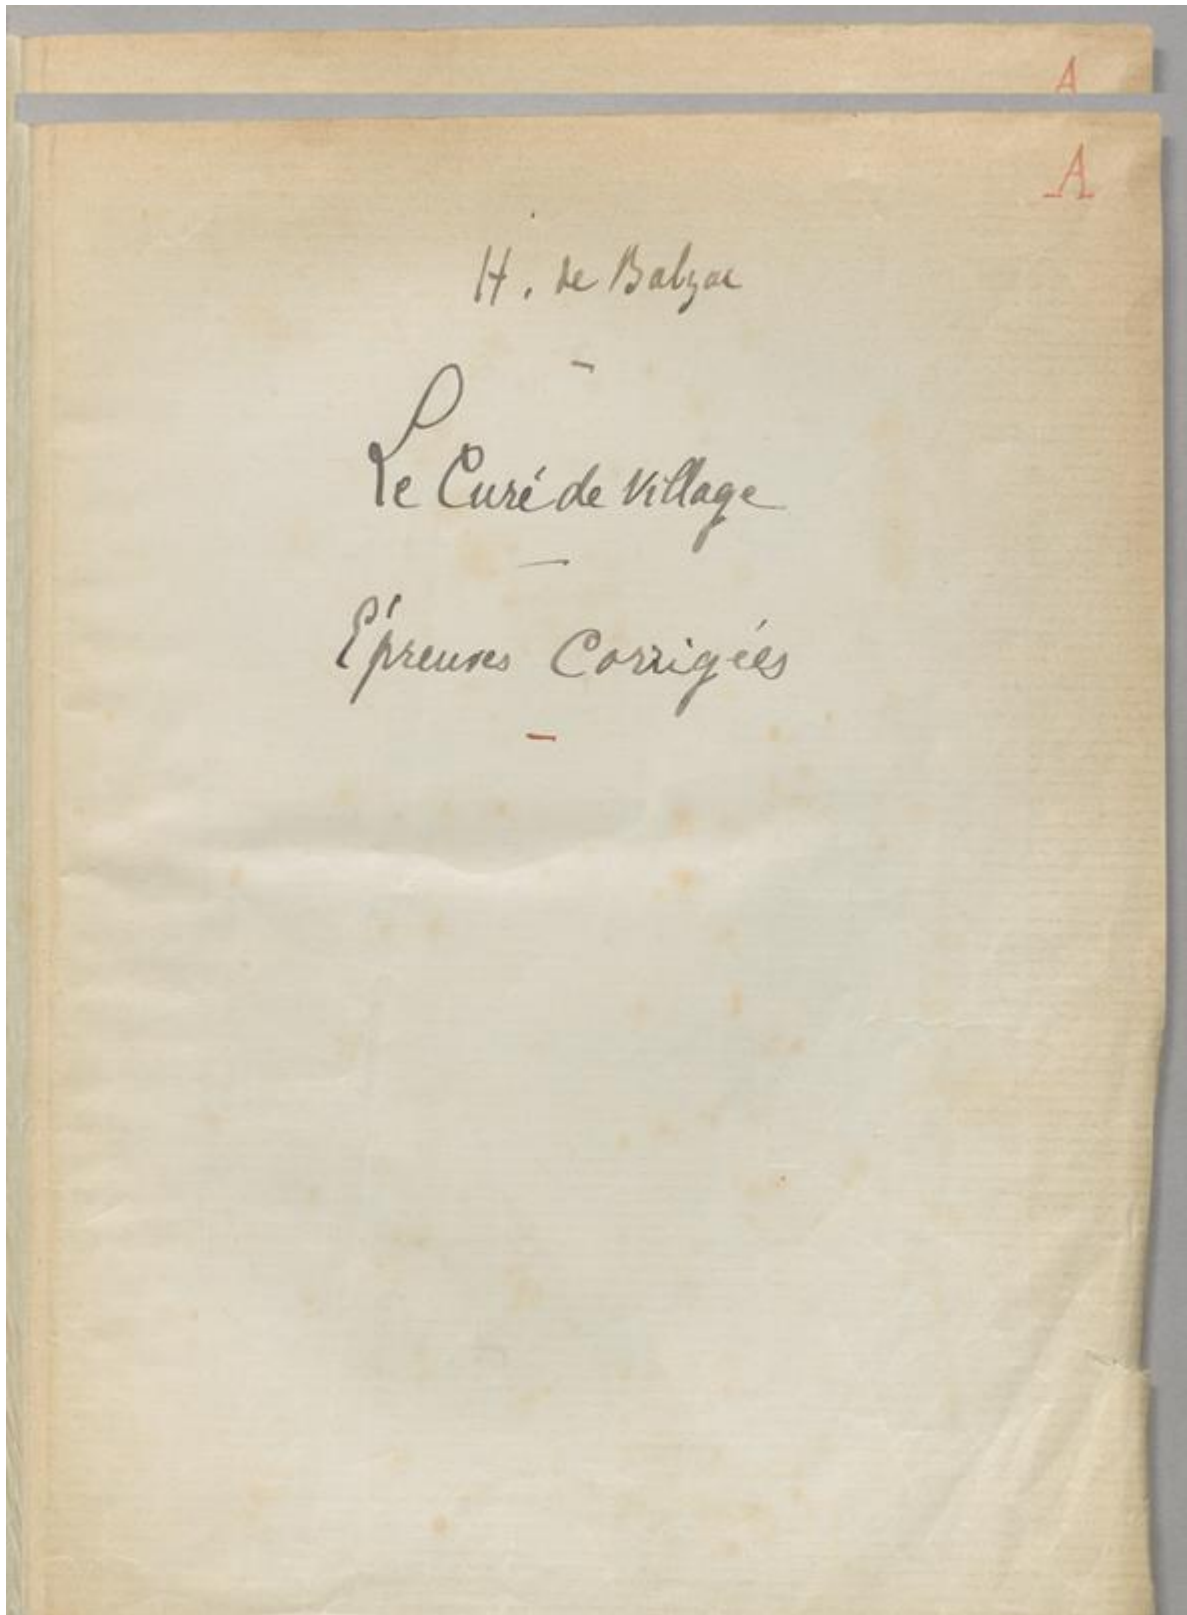 A
A
H. de Balzac
Le Curé de Village
Épreuves Corrigées